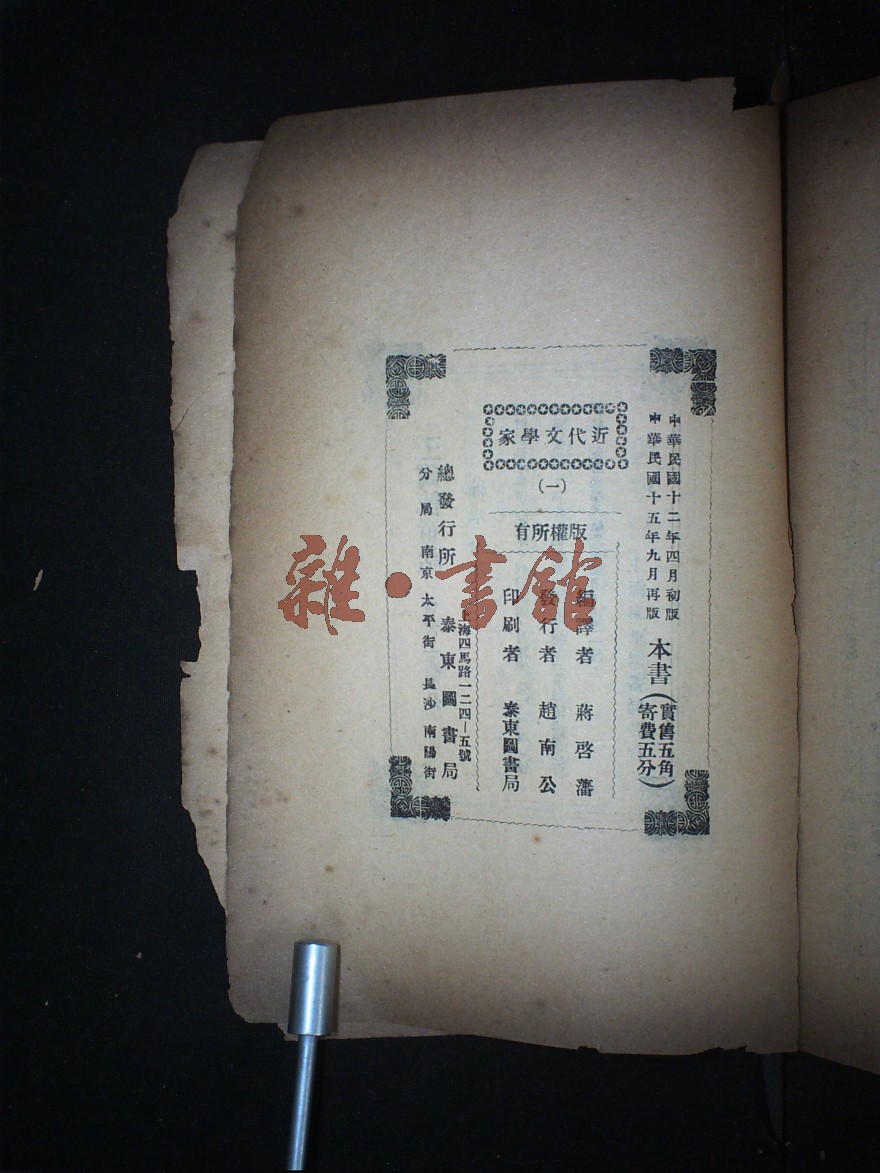 中華民國十二年四月初版
中華民國十五年九月再版
本書(實售五角
寄費五分)
近代文學家
(一)
版權所有
編譯者 蔣啓藩
發行者 趙南公
印刷者 泰東圖書局
上海四馬路一二四—五號
總發行所 泰東圖書局
分局 南京太平街 長沙南陽街
雜·書館